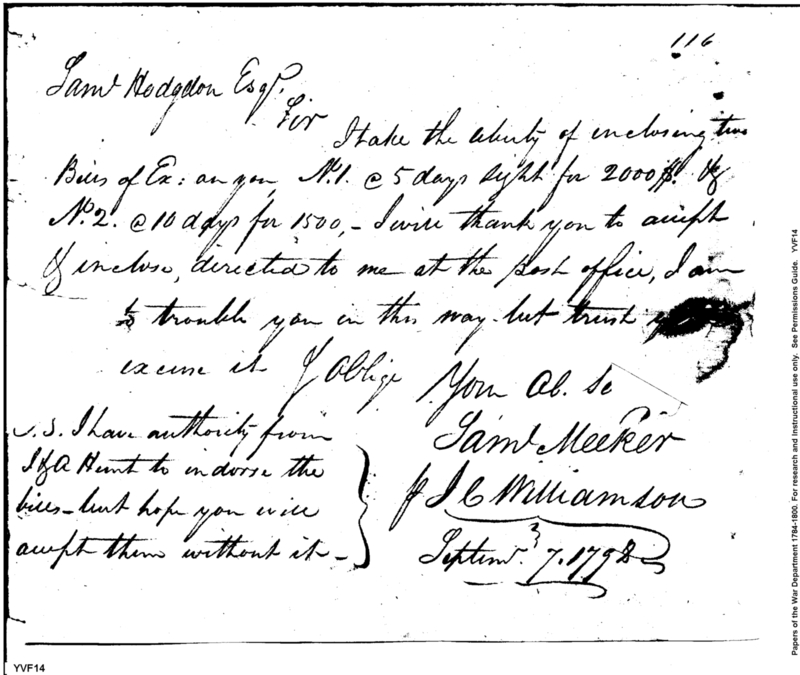 116
Saml Hodgdon Esqr.
Sir
I take the liberty of inclosing two
Bills of Ex: on you, No.1. @ 5 days sight for 2000$. &
No.2. @ 10 days for 1500,- I will thank you to accept
& inclose, directed to me at the post office, I am
to trouble you in this way - but trust
excuse it & Oblige
Your Ob. Se
Saml Meeker
J C Williamson
Septemr. 7. 1798
P.S. I have authority from
J & A Hunt to indorse the
bills - but hope you will
accept them without it -
YVF14
Papers of the War Department 1784-1800. For research and instructional use only. See Permissions Guide. YVF14